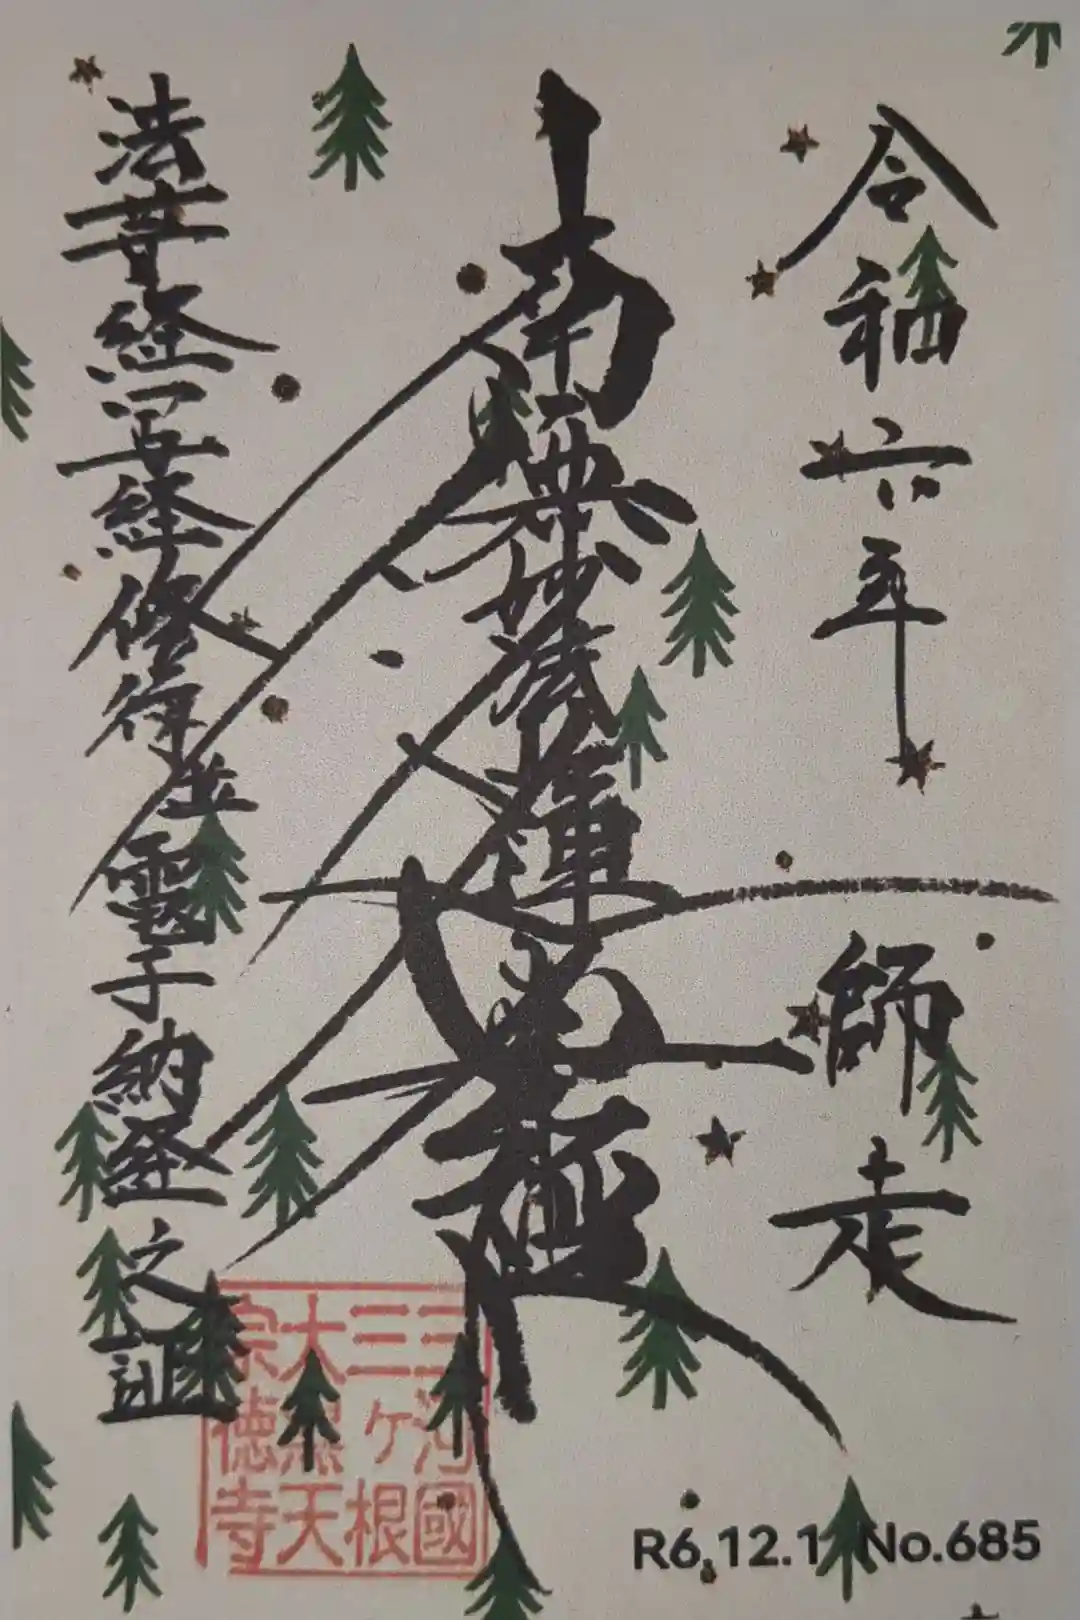 令和六年　師走
南無妙法蓮華経
法華経写経修行並電子納経之証
三河國
三ヶ根
大黒天
宗徳寺
R6.12.1 No.685